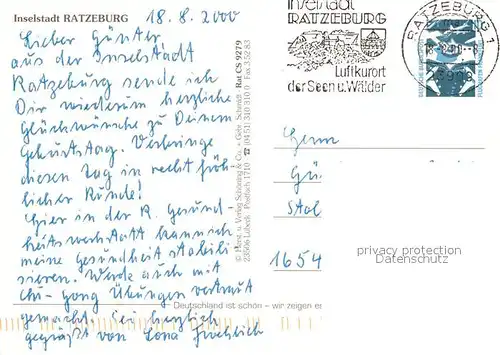 Inselstadt RATZEBURG
18.8.2000
Lieber Günter,
aus der Inselstadt
Ratzeburg sende ich
Dir wiederum herzliche
Glückwünsche zu Deinem
Geburtstag. Verbringe
diesen Tag in recht fröh-
licher Runde!
Hier in der R. Gesund-
heitswerkstatt kann ich
meine Gesundheit stabili
sieren. Werde auch mit
Chi-Gong Übungen vertraut
gemacht. Sei herzlich
gegrüßt von Lona Froehlich
© Foto u. Verlag Schöning & Co. + Gebr. Schmidt Rat CS 9279
23506 Lübeck Postfach 1710 ☎ (0451) 310 310 0 Fax 3 52 83
Inselstadt
RATZEBURG
Luftkurort
der Seen u. Wälder
RATZEBURG 1
Herrn
Gü
Stol
1654
privacy protection
Datenschutz
Deutschland ist schön – wir zeigen es